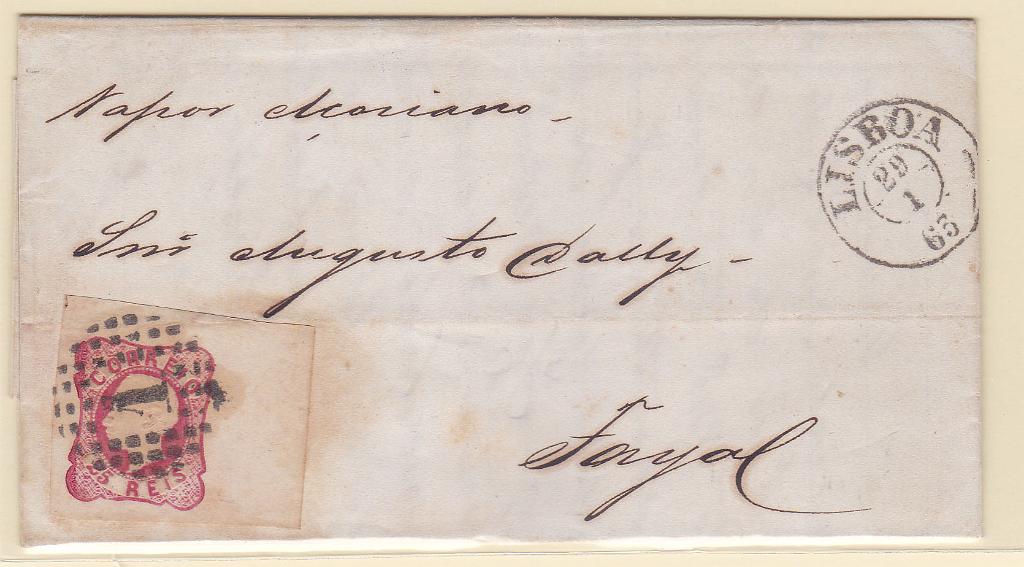 Vapor Açoriano
LISBOA
29
1
63
Snr Augusto Dally
CORREIO
1
25 REIS
Fayal